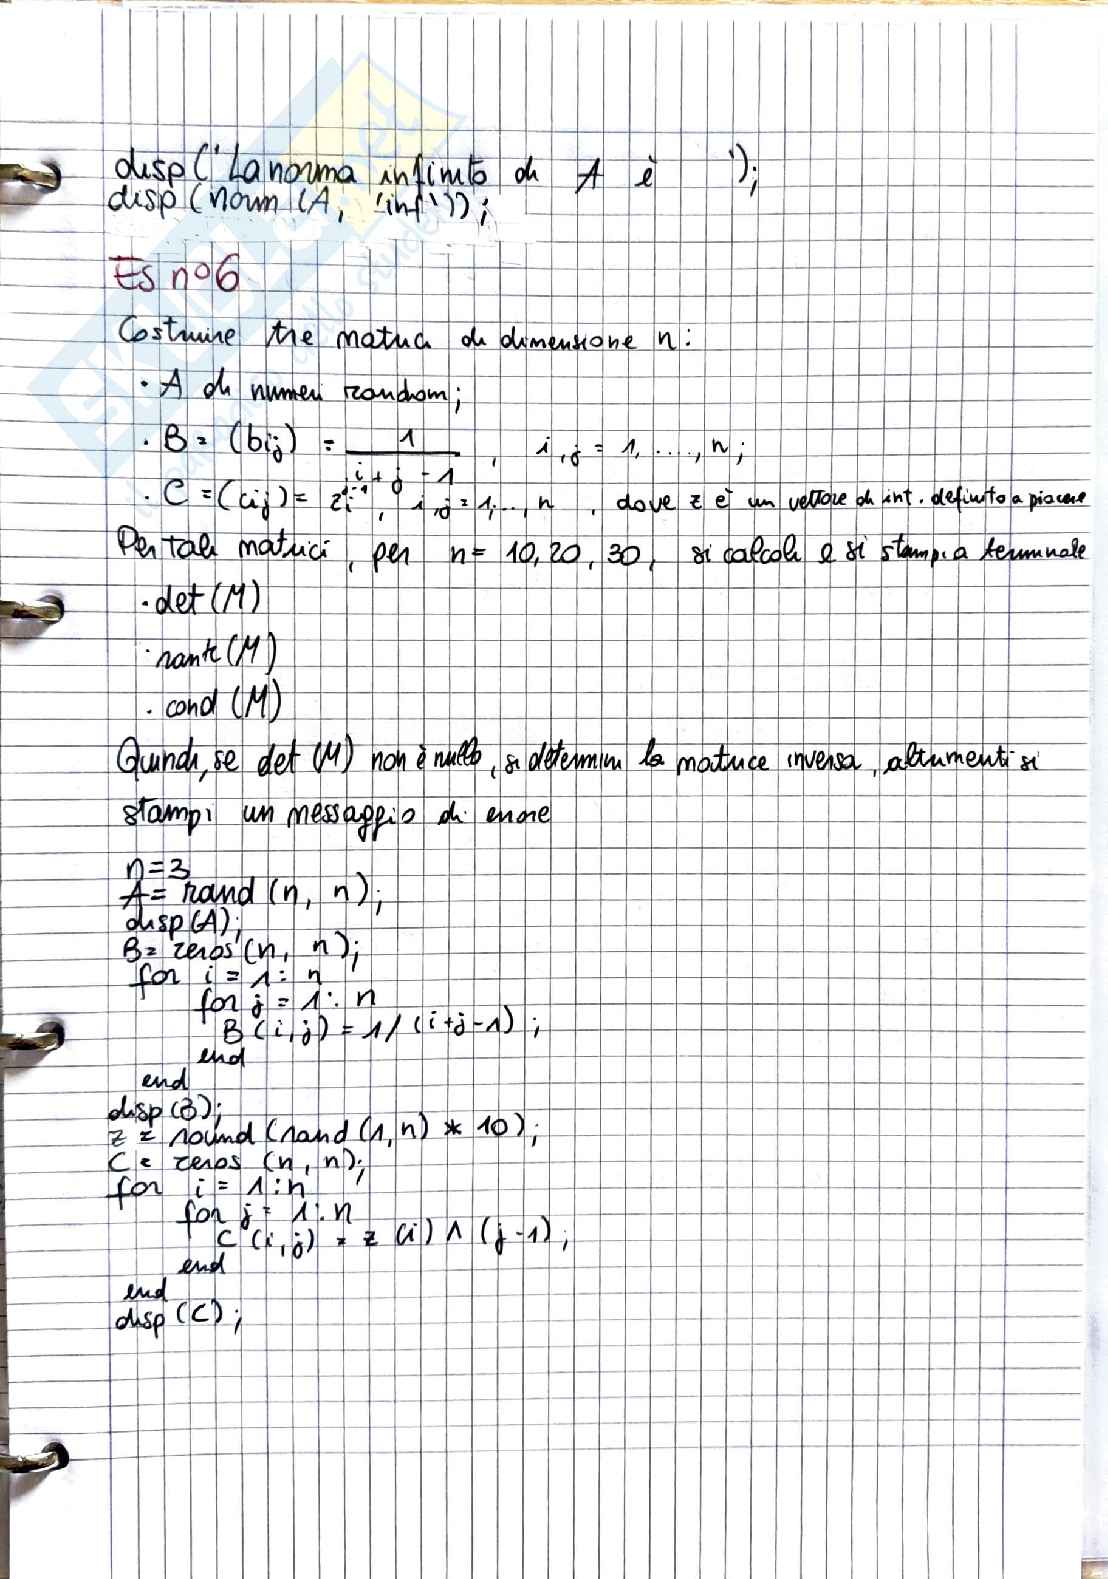 disp('La norma infinito di A è ');
disp(norm(A, 'inf'));
Es n°6
Costruire tre matrici di dimensione n:
· A di numeri random;
· B = (bij) = 1/(i+j-1), i,j = 1,....,n;
· C = (cij) = zi^j-1, i,j=1,..,n, dove z è un vettore di int. definito a piacere
Per tali matrici, per n= 10,20,30, si calcoli e si stampi a terminale
· det(M)
· rank(M)
· cond(M)
Quindi, se det(M) non è nullo, si determini la matrice inversa, altrimenti si
stampi un messaggio di errore
n=3
A= rand(n, n);
disp(A);
B= zeros(n, n);
for i = 1:n
for j = 1:n
B(i,j) = 1/(i+j-1);
end
end
disp(B);
z = round(rand(1,n) * 10);
C = zeros(n,n);
for i = 1:n
for j = 1:n
C(i,j) = z(i)^(j-1);
end
end
disp(C);